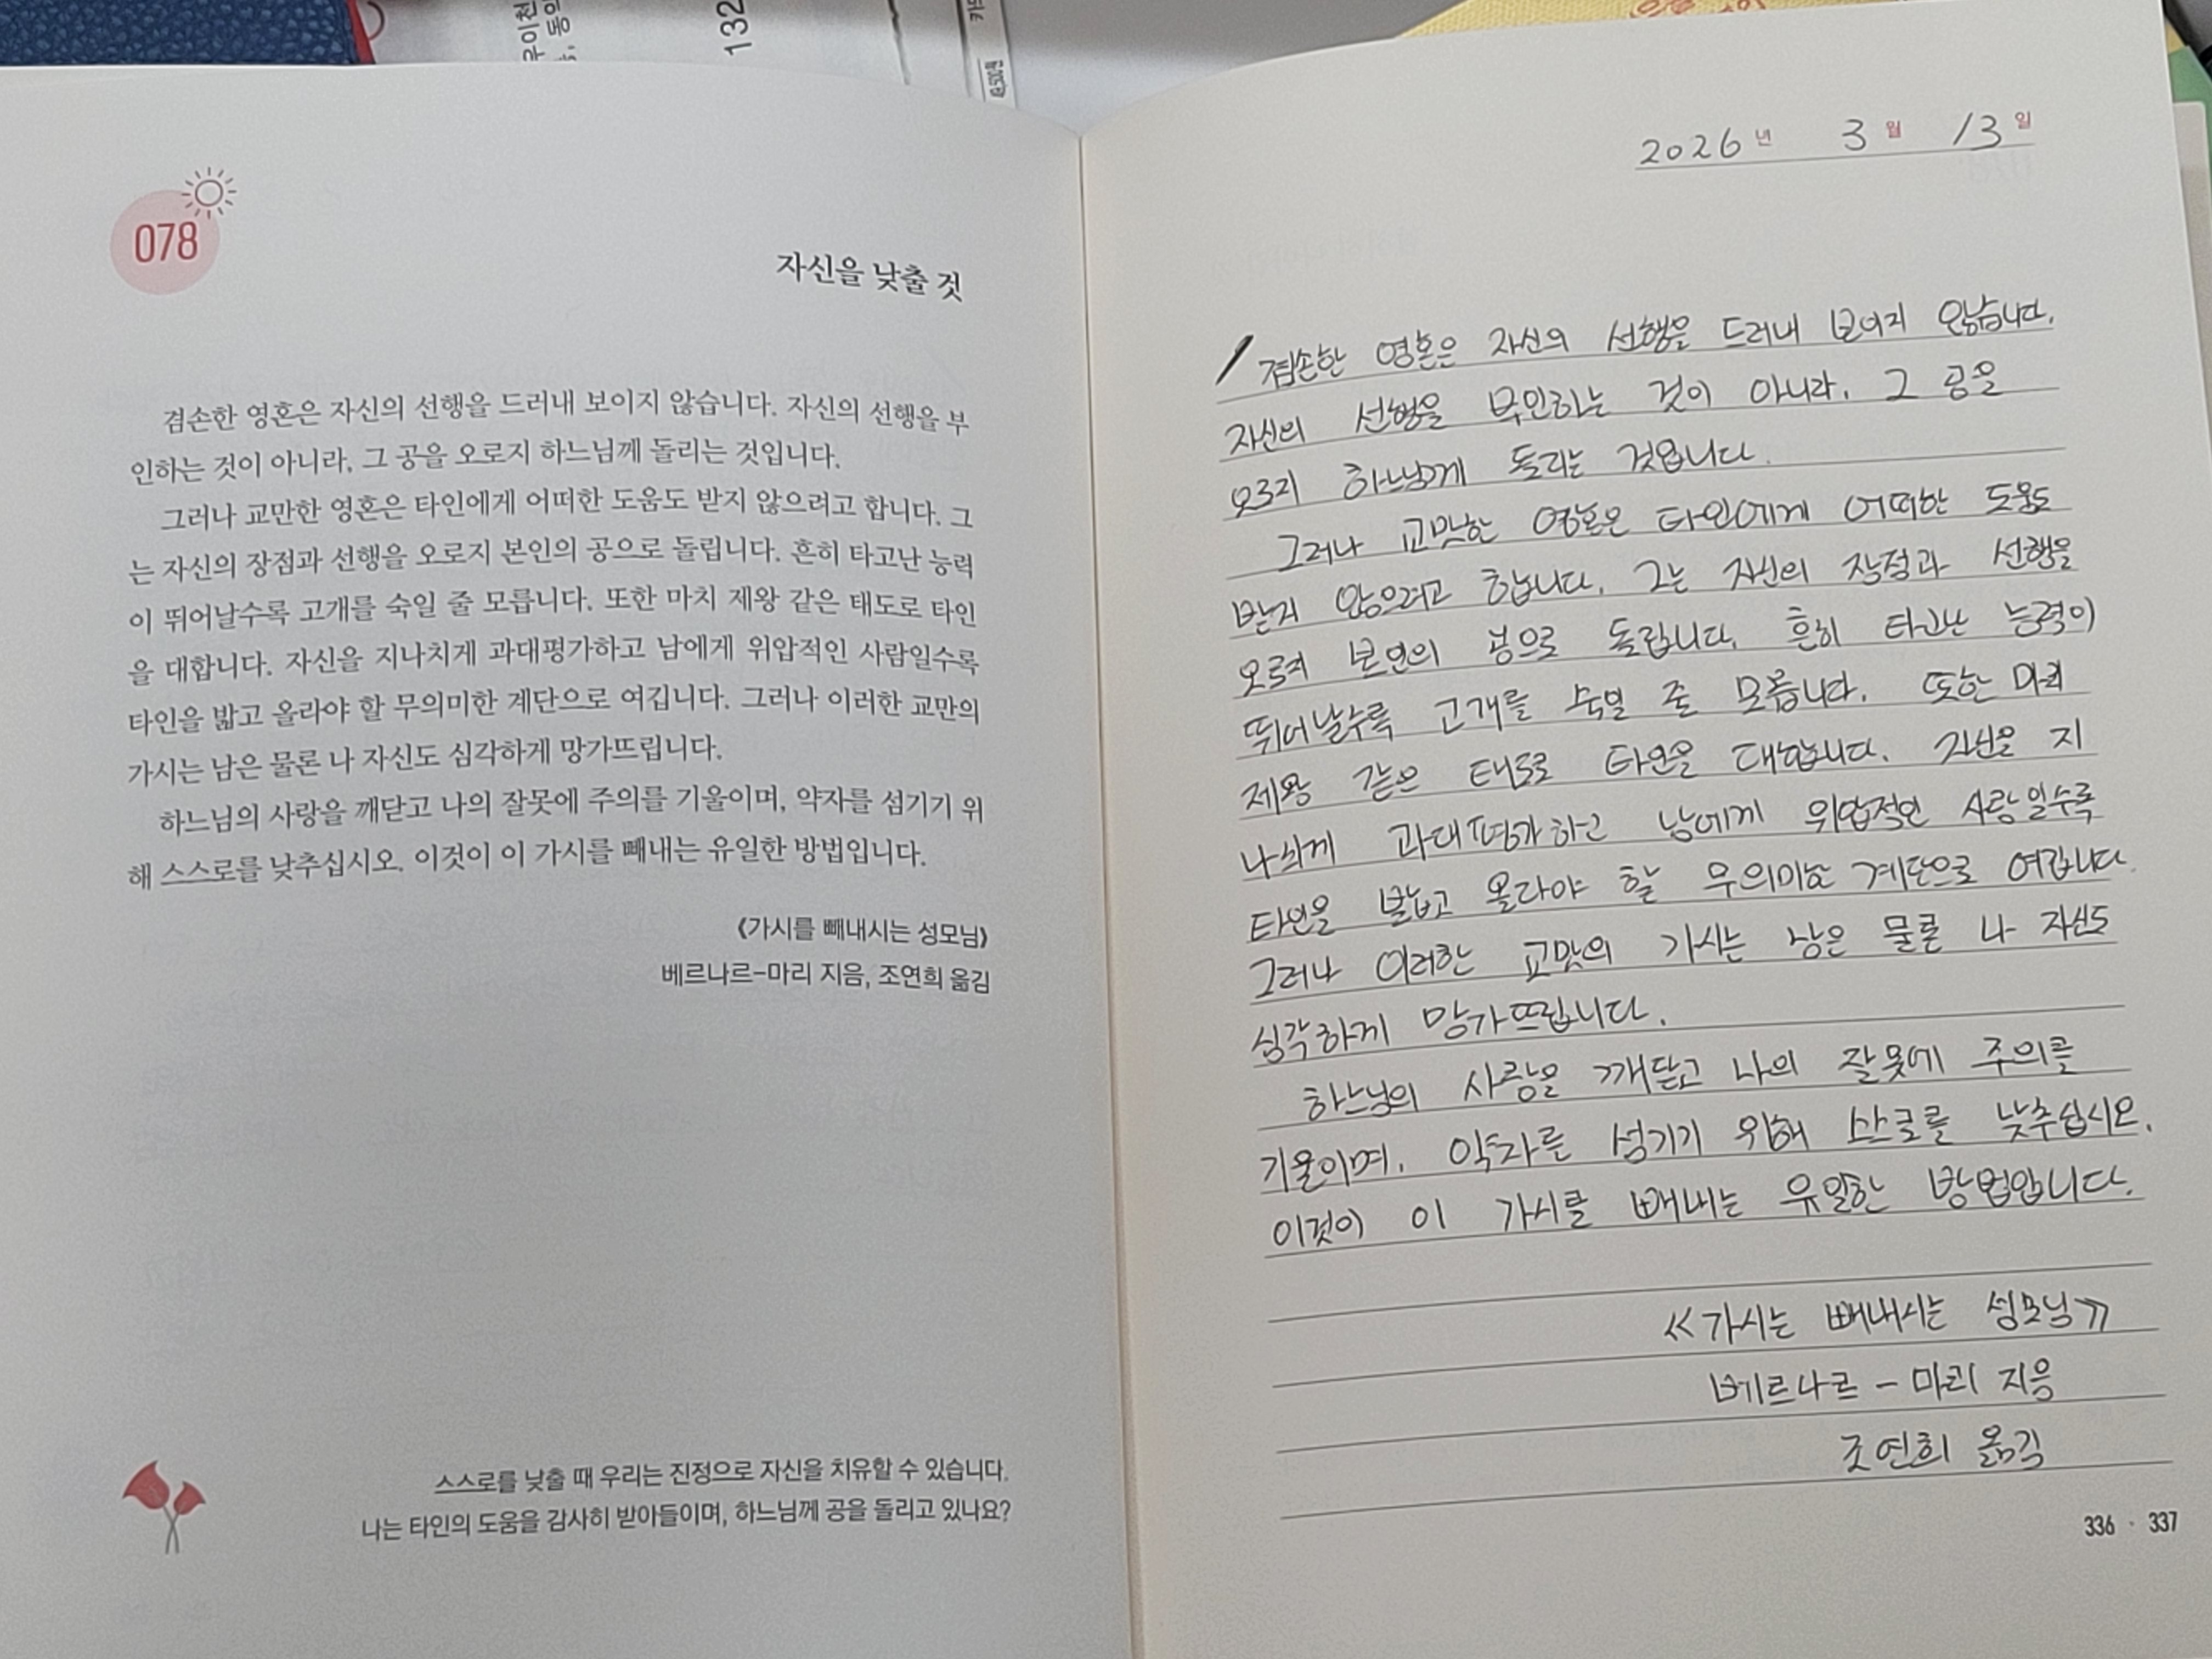 132
078
자신을 낮출 것
겸손한 영혼은 자신의 선행을 드러내 보이지 않습니다. 자신의 선행을 부
인하는 것이 아니라, 그 공을 오로지 하느님께 돌리는 것입니다.
그러나 교만한 영혼은 타인에게 어떠한 도움도 받지 않으려고 합니다. 그
는 자신의 장점과 선행을 오로지 본인의 공으로 돌립니다. 흔히 타고난 능력
이 뛰어날수록 고개를 숙일 줄 모릅니다. 또한 마치 제왕 같은 태도로 타인
을 대합니다. 자신을 지나치게 과대평가하고 남에게 위압적인 사람일수록
타인을 밟고 올라야 할 무의미한 계단으로 여깁니다. 그러나 이러한 교만의
가시는 남은 물론 나 자신도 심각하게 망가뜨립니다.
하느님의 사랑을 깨닫고 나의 잘못에 주의를 기울이며, 약자를 섬기기 위
해 스스로를 낮추십시오. 이것이 이 가시를 빼내는 유일한 방법입니다.
《가시를 빼내시는 성모님》
베르나르-마리 지음, 조연희 옮김
스스로를 낮출 때 우리는 진정으로 자신을 치유할 수 있습니다.
나는 타인의 도움을 감사히 받아들이며, 하느님께 공을 돌리고 있나요?
2026년 3월 13일
겸손한 영혼은 자신의 선행을 드러내 보이지 않습니다.
자신의 선행을 부인하는 것이 아니라, 그 공을
오로지 하느님께 돌리는 것입니다.
그러나 교만한 영혼은 타인에게 어떠한 도움도
받지 않으려고 합니다. 그는 자신의 장점과 선행을
오로지 본인의 공으로 돌립니다. 흔히 타고난 능력이
뛰어날수록 고개를 숙일 줄 모릅니다. 또한 마치
제왕 같은 태도로 타인을 대합니다. 자신을 지
나치게 과대평가하고 남에게 위압적인 사람일수록
타인을 밟고 올라야 할 무의미한 계단으로 여깁니다.
그러나 이러한 교만의 가시는 남은 물론 나 자신도
심각하게 망가뜨립니다.
하느님의 사랑을 깨닫고 나의 잘못에 주의를
기울이며, 약자를 섬기기 위해 스스로를 낮추십시오.
이것이 이 가시를 빼내는 유일한 방법입니다.
《가시는 빼내시는 성모님》
베르나르 - 마리 지음
조연희 옮김
336 · 337